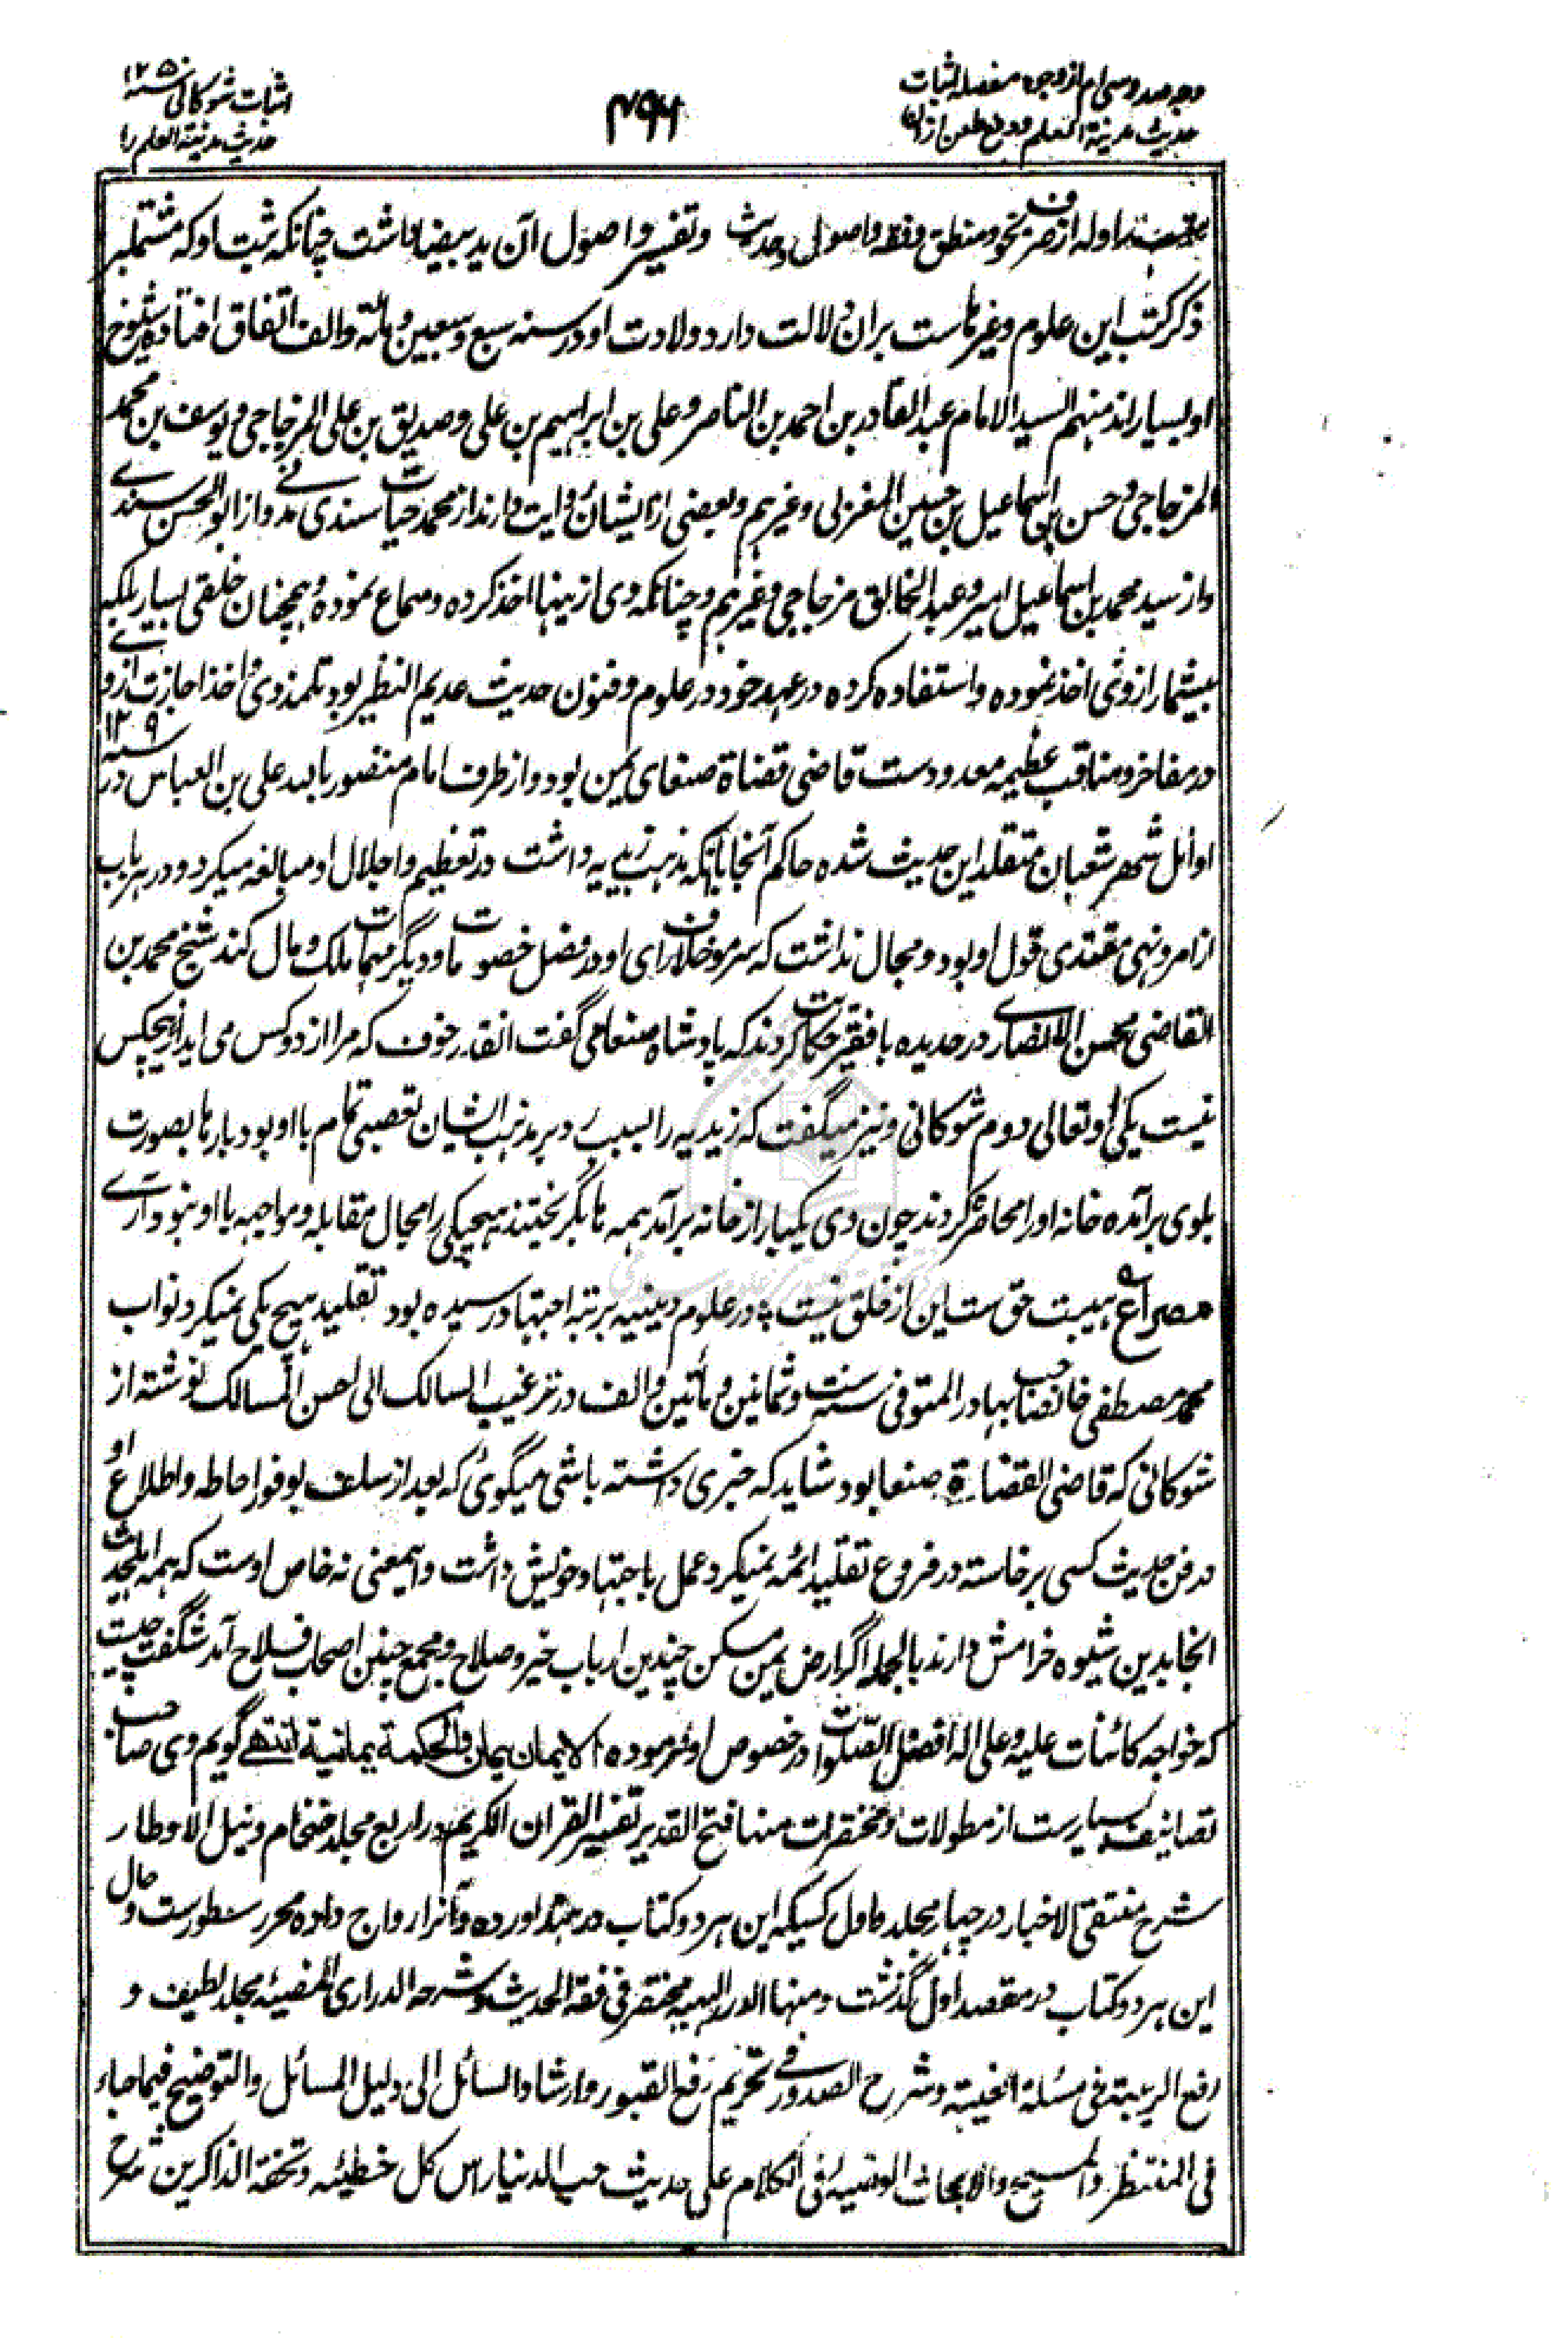 وجه صد و سی ام از وجوه مفصله اثبات
حدیث مدینة العلم و دفع طعن از ان
۴۹۶
اثبات شوکانی سنه ۱۲۵۰
حدیث مدینة العلم را
متداوله از صرف و نحو و منطق و فقه و اصول و حدیث و تفسیر و اصول آن ید بیضا داشت چنانکه ثبت او که مشتمل بر
ذکر کتب این علوم و غیرهاست بران دلالت دارد ولادت او در سنه سبع و سبعین و مائة والف اتفاق افتاده شیوخ
او بسیار اند منهم السید الامام عبد القادر بن احمد بن الناصر و علی بن ابراهیم بن علی و صدیق بن علی المزجاجی و یوسف بن محمد
المزجاجی و حسن بن اسماعیل بن حسین المغربی و غیرهم و بعضی از ایشان روایت دارند از محمد حیات سندی مدنی و از ابو الحسن سندے
و از سید محمد بن اسماعیل امیر و عبد الخالق مزجاجی و غیرهم و چنانکه وی ازینها اخذ کرده و سماع نموده و همچنان خلقی بسیار بلکه
بیشمار از وی اخذ نموده و استفاده کرده در عهد خود در علوم و فنون حدیث عدیم النظیر بود تلمذ وی و اخذ اجازت از وے
در مفاخر و مناقب عظیمه معدودست قاضی قضاة صنعای یمن بود و از طرف امام منصور بالله علی بن العباس در سنه ۱۲۰۹
اوائل شهر شعبان متقلد این حدیث شده حاکم آنجا باآنکه مذهب زیدیه داشت در تعظیم و اجلال او مبالغه میکرد و در هر باب
از امر و نهی مقتدی قول او بود و مجال نداشت که سر مو خلاف رای او در فصل خصومات و دیگر مهمات ملک و مال کند شیخ محمد بن
القاضی محسن الانصاری در حدیده با فقیر حکایت کردند که پادشاه صنعا می گفت انقدر خوف که مرا از دو کس می اید از هیچکس
نیست یکی او تعالی دوم شوکانی و نیز میگفت که زیدیه را بسبب رد بر مذهب ایشان تعصبی تمام با او بود بارها بصورت
بلوی برآمده خانه او را محاصره کردند چون وی یکبار از خانه برآمد همه ها بگریختند هیچیکی را مجال مقابله و مواجهه با او نبود ارے
مصراع هیبت حق ست این از خلق نیست ٭ در علوم دینیه برتبه اجتهاد رسیده بود تقلید هیچ یکی نمیکرد نواب
محمد مصطفی خان صاحب بهادر المتوفی سنه ست و ثمانین و مأتین و الف در ترغیب السالک الی احسن المسالک نوشته از
شوکانی که قاضی القضاة صنعا بود شاید که خبری داشته باشی میگوی که بعد از سلف بوفور احاطه و اطلاع او
در فن حدیث کسی برخاسته در فروع تقلید ائمه نمیکرد عمل باجتهاد خویش داشت و اینمعنی نه خاص اوست که همه اهلحدیث
انجا بدین شیوه خرامش دارند بالجمله اگر ارض یمن مسکن چندین ارباب خیر و صلاح و مجمع چنین اصحاب فلاح آمد شگفت چیست
که خواجه کائنات علیه و علی اله افضل الصلوات در خصوص او فرموده الایمان یمان والحکمة یمانیة انتهے گویم وی صاحب
تصانیف بسیارست از مطولات و مختصرات منها فتح القدیر تفسیر القران الکریم در اربع مجلد ضخام و نیل الاوطار
شرح منتقی الاخبار در چهار مجلد و اول کسیکه این هر دو کتاب در هند اورده و آنرا رواج داده محرر سطورست و حال
این هر دو کتاب در مقصد اول گذشت و منها الدرر البهیه مختصر فی فقه الحدیث و شرحه الدراری المضیئه مجلد لطیف و
رفع الریبة فی مسئلة الغیبة و شرح الصدور فے تحریم رفع القبور و ارشاد السائل الی دلیل المسائل والتوضیح فیما جاء
فی المنتظر والمسیح والابحاث الوضیه فی الکلام علی حدیث حب الدنیا راس کل خطیئه و تحفة الذاکرین شرح